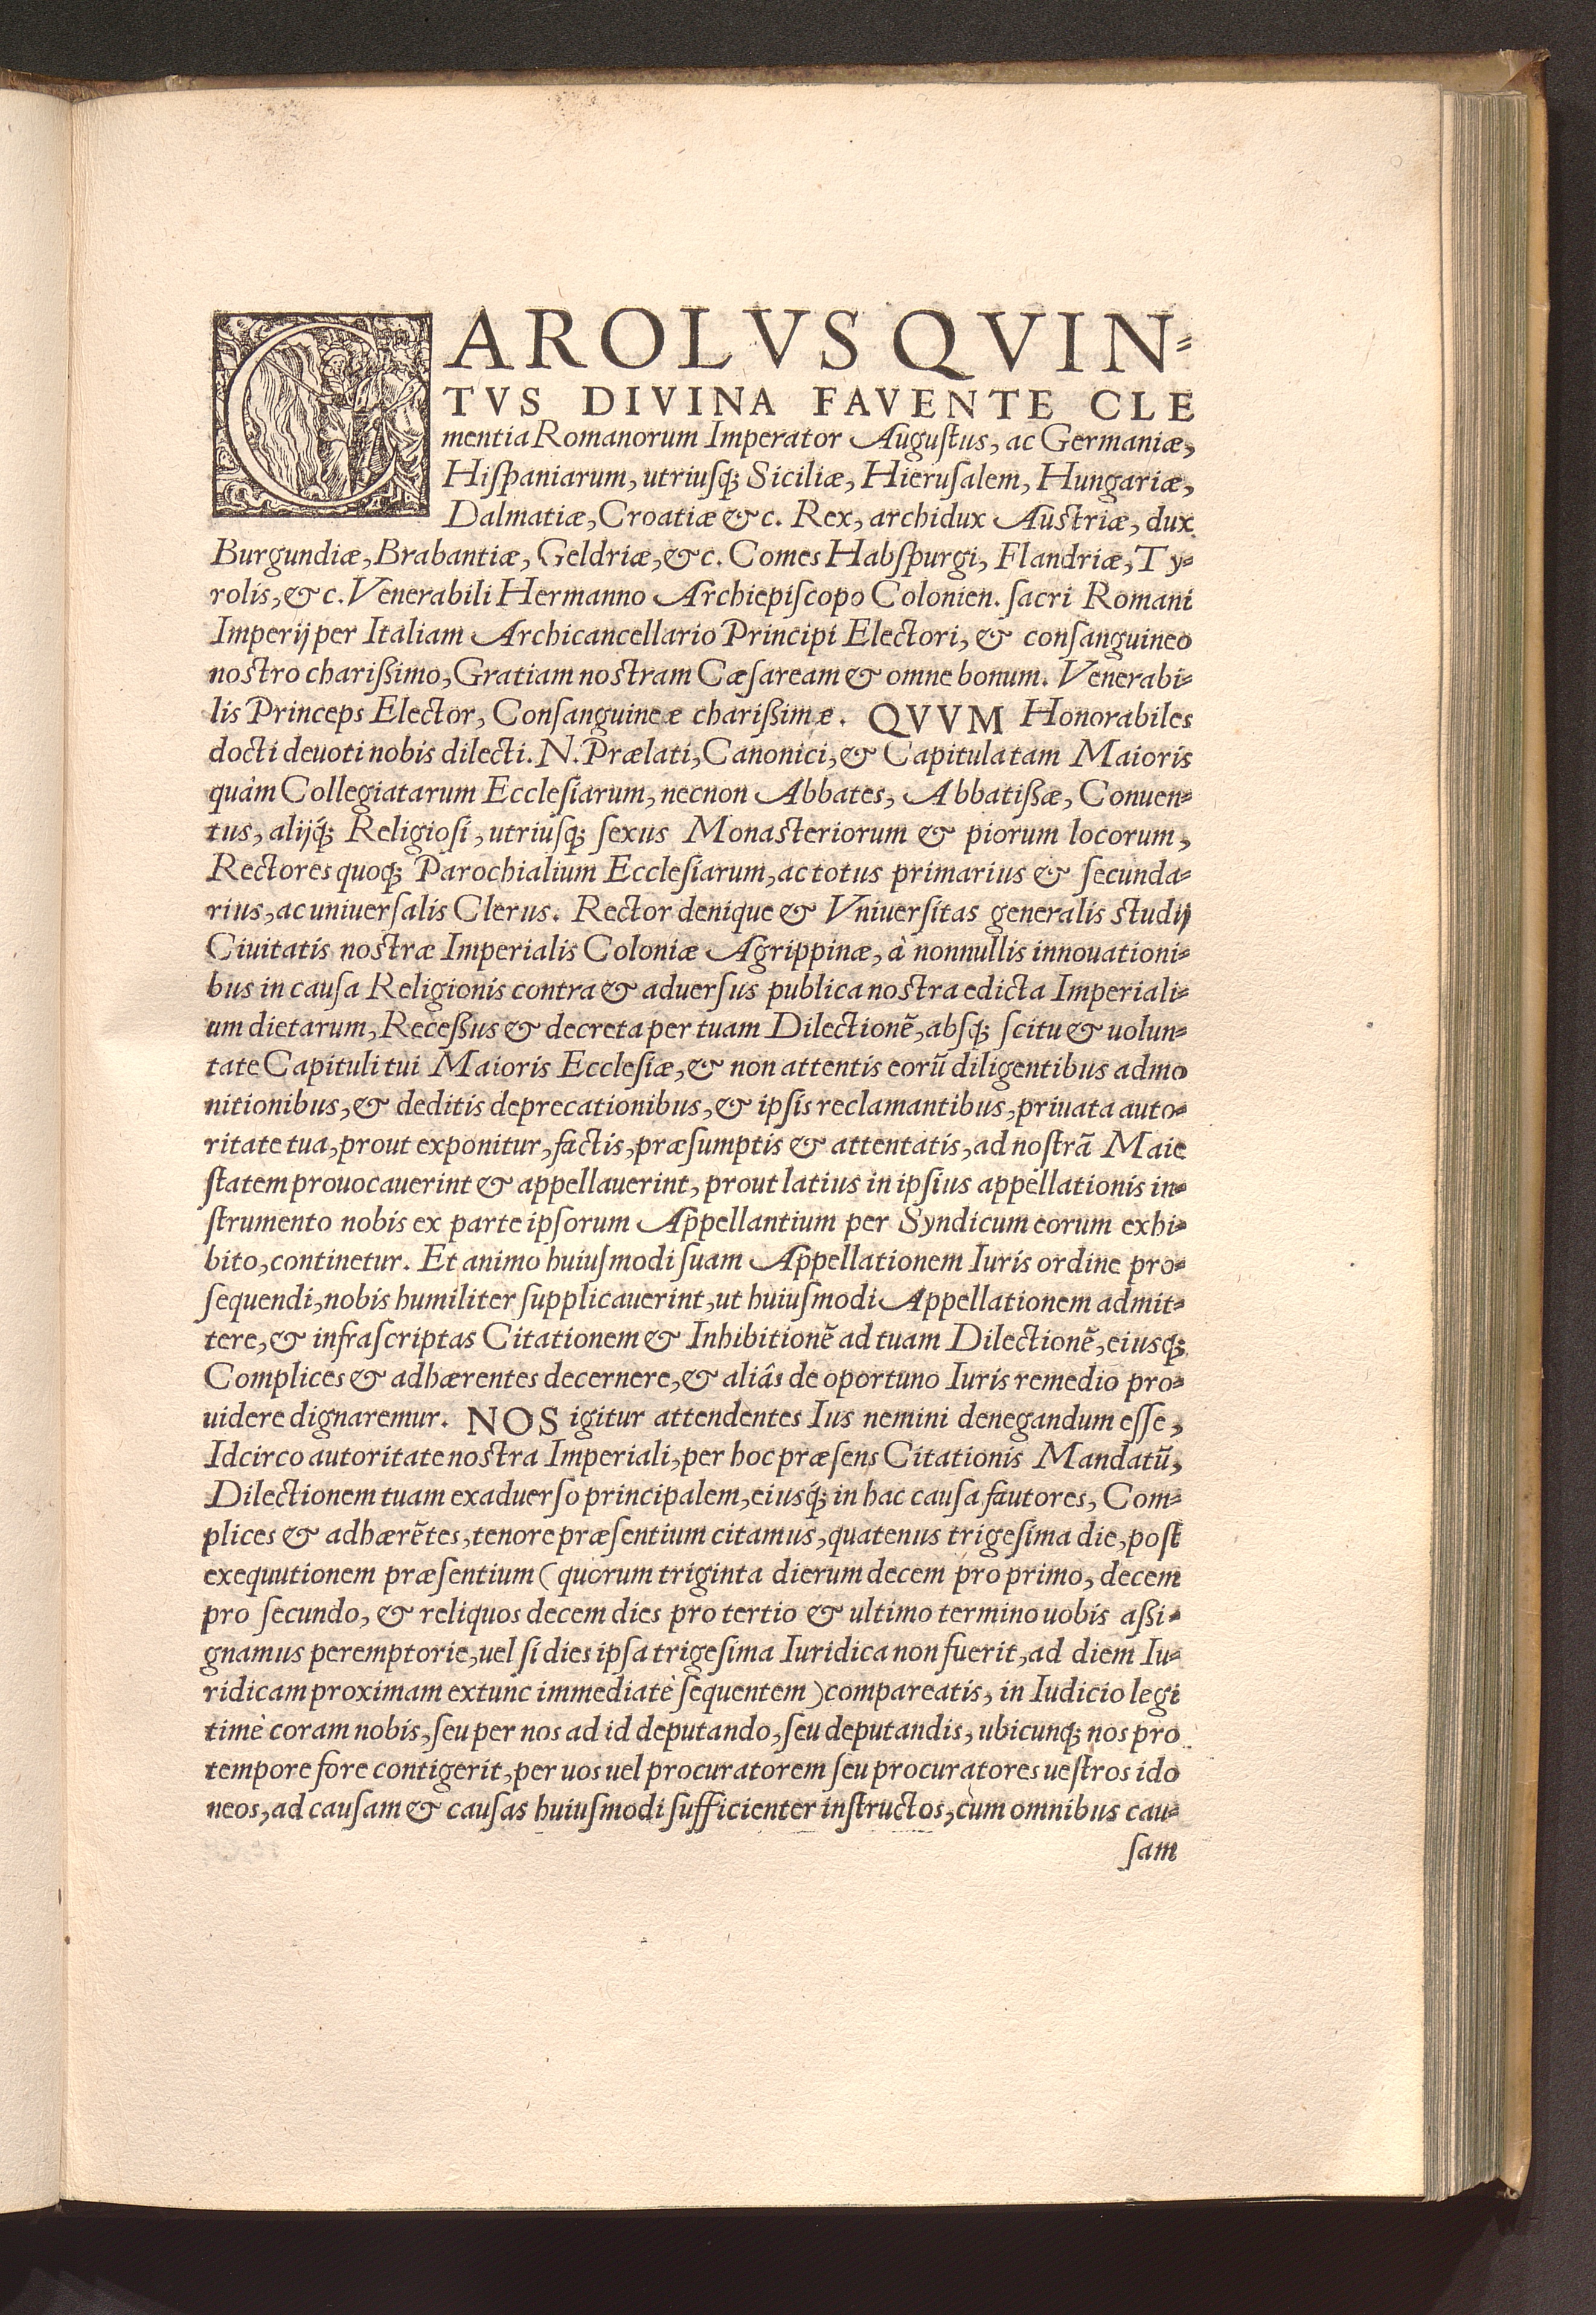 CAROLVS QVIN⸗
TVS DIVINA FAVENTE CLE
mentia Romanorum Imperator Auguſtus, ac Germaniæ,
Hiſpaniarum, utriuſq; Siciliæ, Hieruſalem, Hungariæ,
Dalmatiæ, Croatiæ &c. Rex, archidux Auſtriæ, dux
Burgundiæ, Brabantiæ, Geldriæ, &c. Comes Habſpurgi, Flandriæ, Ty⸗
rolis, &c. Venerabili Hermanno Archiepiſcopo Colonien. ſacri Romani
Imperij per Italiam Archicancellario Principi Electori, & conſanguineo
noſtro charißimo, Gratiam noſtram Cæſaream & omne bonum. Venerabi⸗
lis Princeps Elector, Conſanguineæ charißimæ. QVVM Honorabiles
docti deuoti nobis dilecti. N. Prælati, Canonici, & Capitula tam Maioris
quàm Collegiatarum Eccleſiarum, necnon Abbates, Abbatißæ, Conuen⸗
tus, alijq́; Religioſi, utriuſq; ſexus Monaſteriorum & piorum locorum,
Rectores quoq; Parochialium Eccleſiarum, ac totus primarius & ſecunda⸗
rius, ac uniuerſalis Clerus. Rector denique & Vniuerſitas generalis ſtudij
Ciuitatis noſtræ Imperialis Coloniæ Agrippinæ, à nonnullis innouationi⸗
bus in cauſa Religionis contra & aduerſus publica noſtra edicta Imperiali⸗
um dietarum, Receßus & decreta per tuam Dilectionẽ, abſq; ſcitu & uolun⸗
tate Capituli tui Maioris Eccleſiæ, & non attentis eorũ diligentibus admo
nitionibus, & deditis deprecationibus, & ipſis reclamantibus, priuata auto⸗
ritate tua, prout exponitur, factis, præſumptis & attentatis, ad noſtrã Maie
ſtatem prouocauerint & appellauerint, prout latius in ipſius appellationis in⸗
ſtrumento nobis ex parte ipſorum Appellantium per Syndicum eorum exhi⸗
bito, continetur. Et animo huiuſmodi ſuam Appellationem Iuris ordine pro⸗
ſequendi, nobis humiliter ſupplicauerint, ut huiuſmodi Appellationem admit⸗
tere, & infraſcriptas Citationem & Inhibitionẽ ad tuam Dilectionẽ, eiusq;
Complices & adhærentes decernere, & aliâs de oportuno Iuris remedio pro⸗
uidere dignaremur. NOS igitur attendentes Ius nemini denegandum eſſe,
Idcirco autoritate noſtra Imperiali, per hoc præſens Citationis Mandatũ,
Dilectionem tuam exaduerſo principalem, eiusq́; in hac cauſa fautores, Com⸗
plices & adhærẽtes, tenore præſentium citamus, quatenus trigeſima die, poſt
exequutionem præſentium (quorum triginta dierum decem pro primo, decem
pro ſecundo, & reliquos decem dies pro tertio & ultimo termino uobis aßi⸗
gnamus peremptorie, uel ſi dies ipſa trigeſima Iuridica non fuerit, ad diem Iu⸗
ridicam proximam extunc immediatè ſequentem) compareatis, in Iudicio legi
timè coram nobis, ſeu per nos ad id deputando, ſeu deputandis, ubicunq; nos pro
tempore fore contigerit, per uos uel procuratorem ſeu procuratores ueſtros ido
neos, ad cauſam & cauſas huiuſmodi ſufficienter inſtructos, cùm omnibus cau⸗
ſam